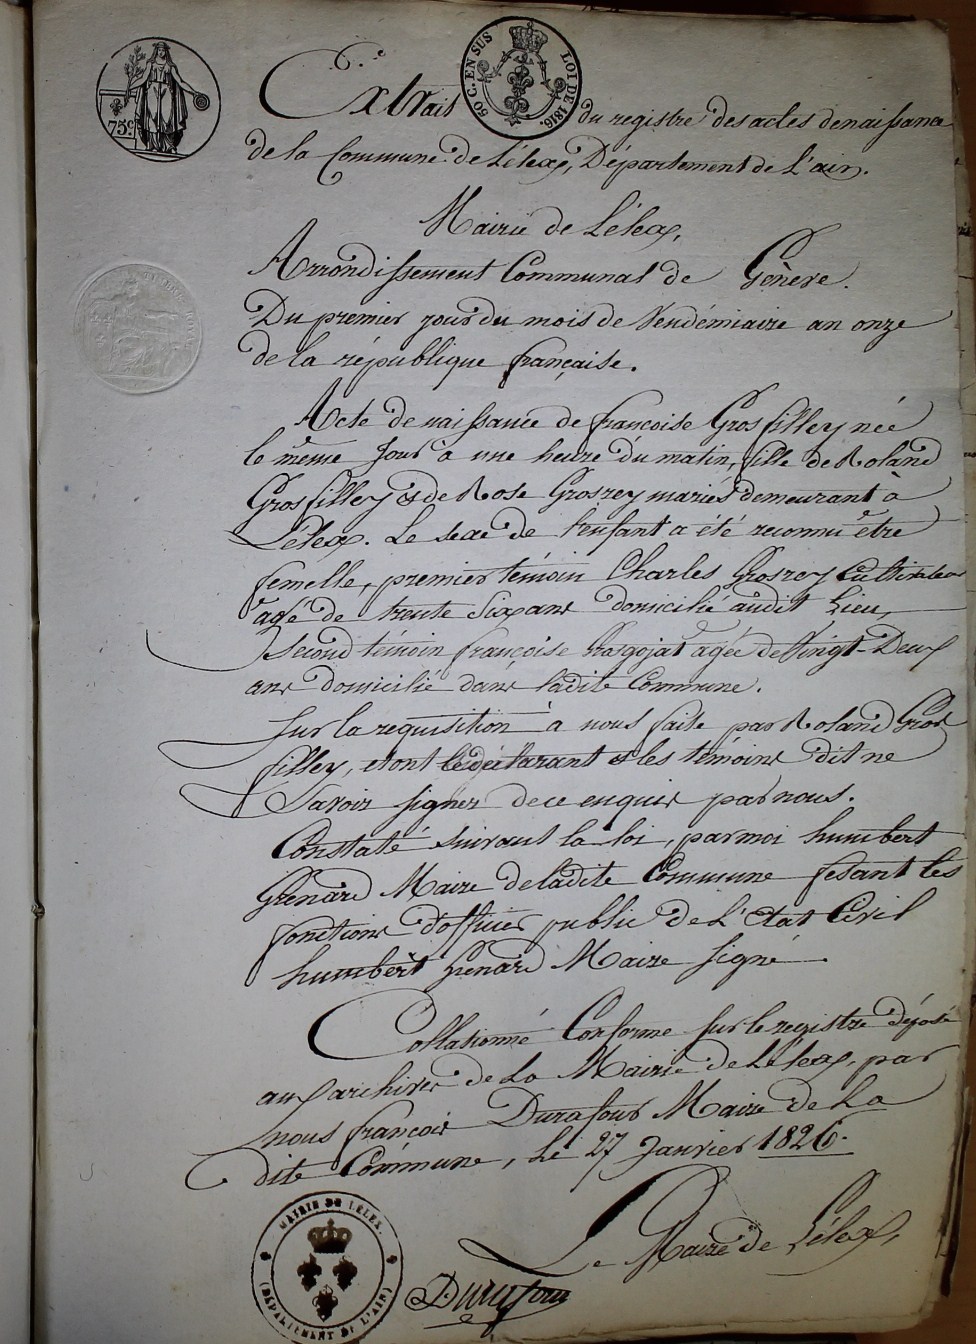 75c
50 C. EN SUS LOI DE 1816.
Extrait du registre des actes de naissance
de la Commune de Lélex, Département de L'ain.
Mairie de Lélex,
Arrondissement Communal de Genève.
Du premier jour du mois de Vendémiaire an onze
de la république française.
Acte de naissance de françoise Grosfilley née
le même Jour à une heure du matin, fille de Roland
Grosfilley & de Rose Grosrey mariés demeurant à
Lélex. Le sexe de l'enfant a été reconnu être
femelle, premier témoin Charles Grosrey Cultivateur
agé de trente Six ans domicilié audit Lieu,
Second témoin françoise agée de Vingt-Deux
ans domicilié dans ladite Commune.
Sur la requisition à nous faite par Roland Gros
filley, et ont le déclarant et les témoins dit ne
Savoir signer de ce enquis par nous.
Constaté suivant la loi, par moi humbert
Grenard Maire deladite Commune fesant les
fonctions d'officier public de L'état Civil
humbert Grenard Maire signé
Collationné Conforme sur le registre déposé
aux archives de La Mairie de Lélex, par
nous françois Durafour Maire de La
dite Commune, Le 27 Janvier 1826.
Le Maire de Lélex,
Durafour
MAIRIE DE LÉLEX.
(DÉPARTEMENT DE L'AIN)